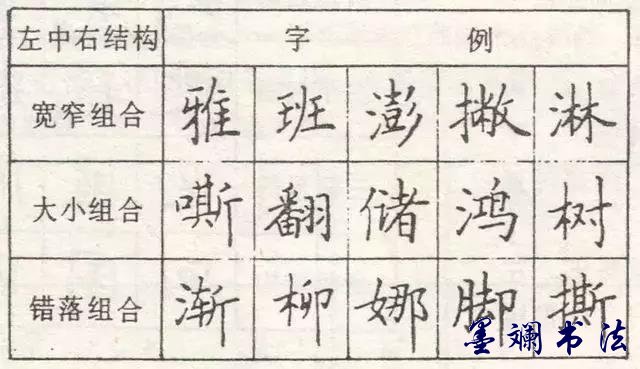 左中右结构 字例
宽窄组合 雅 班 澎 撇 淋
大小组合 嘶 翻 储 鸿 树
错落组合 渐 柳 娜 脚 撕
墨斓书法